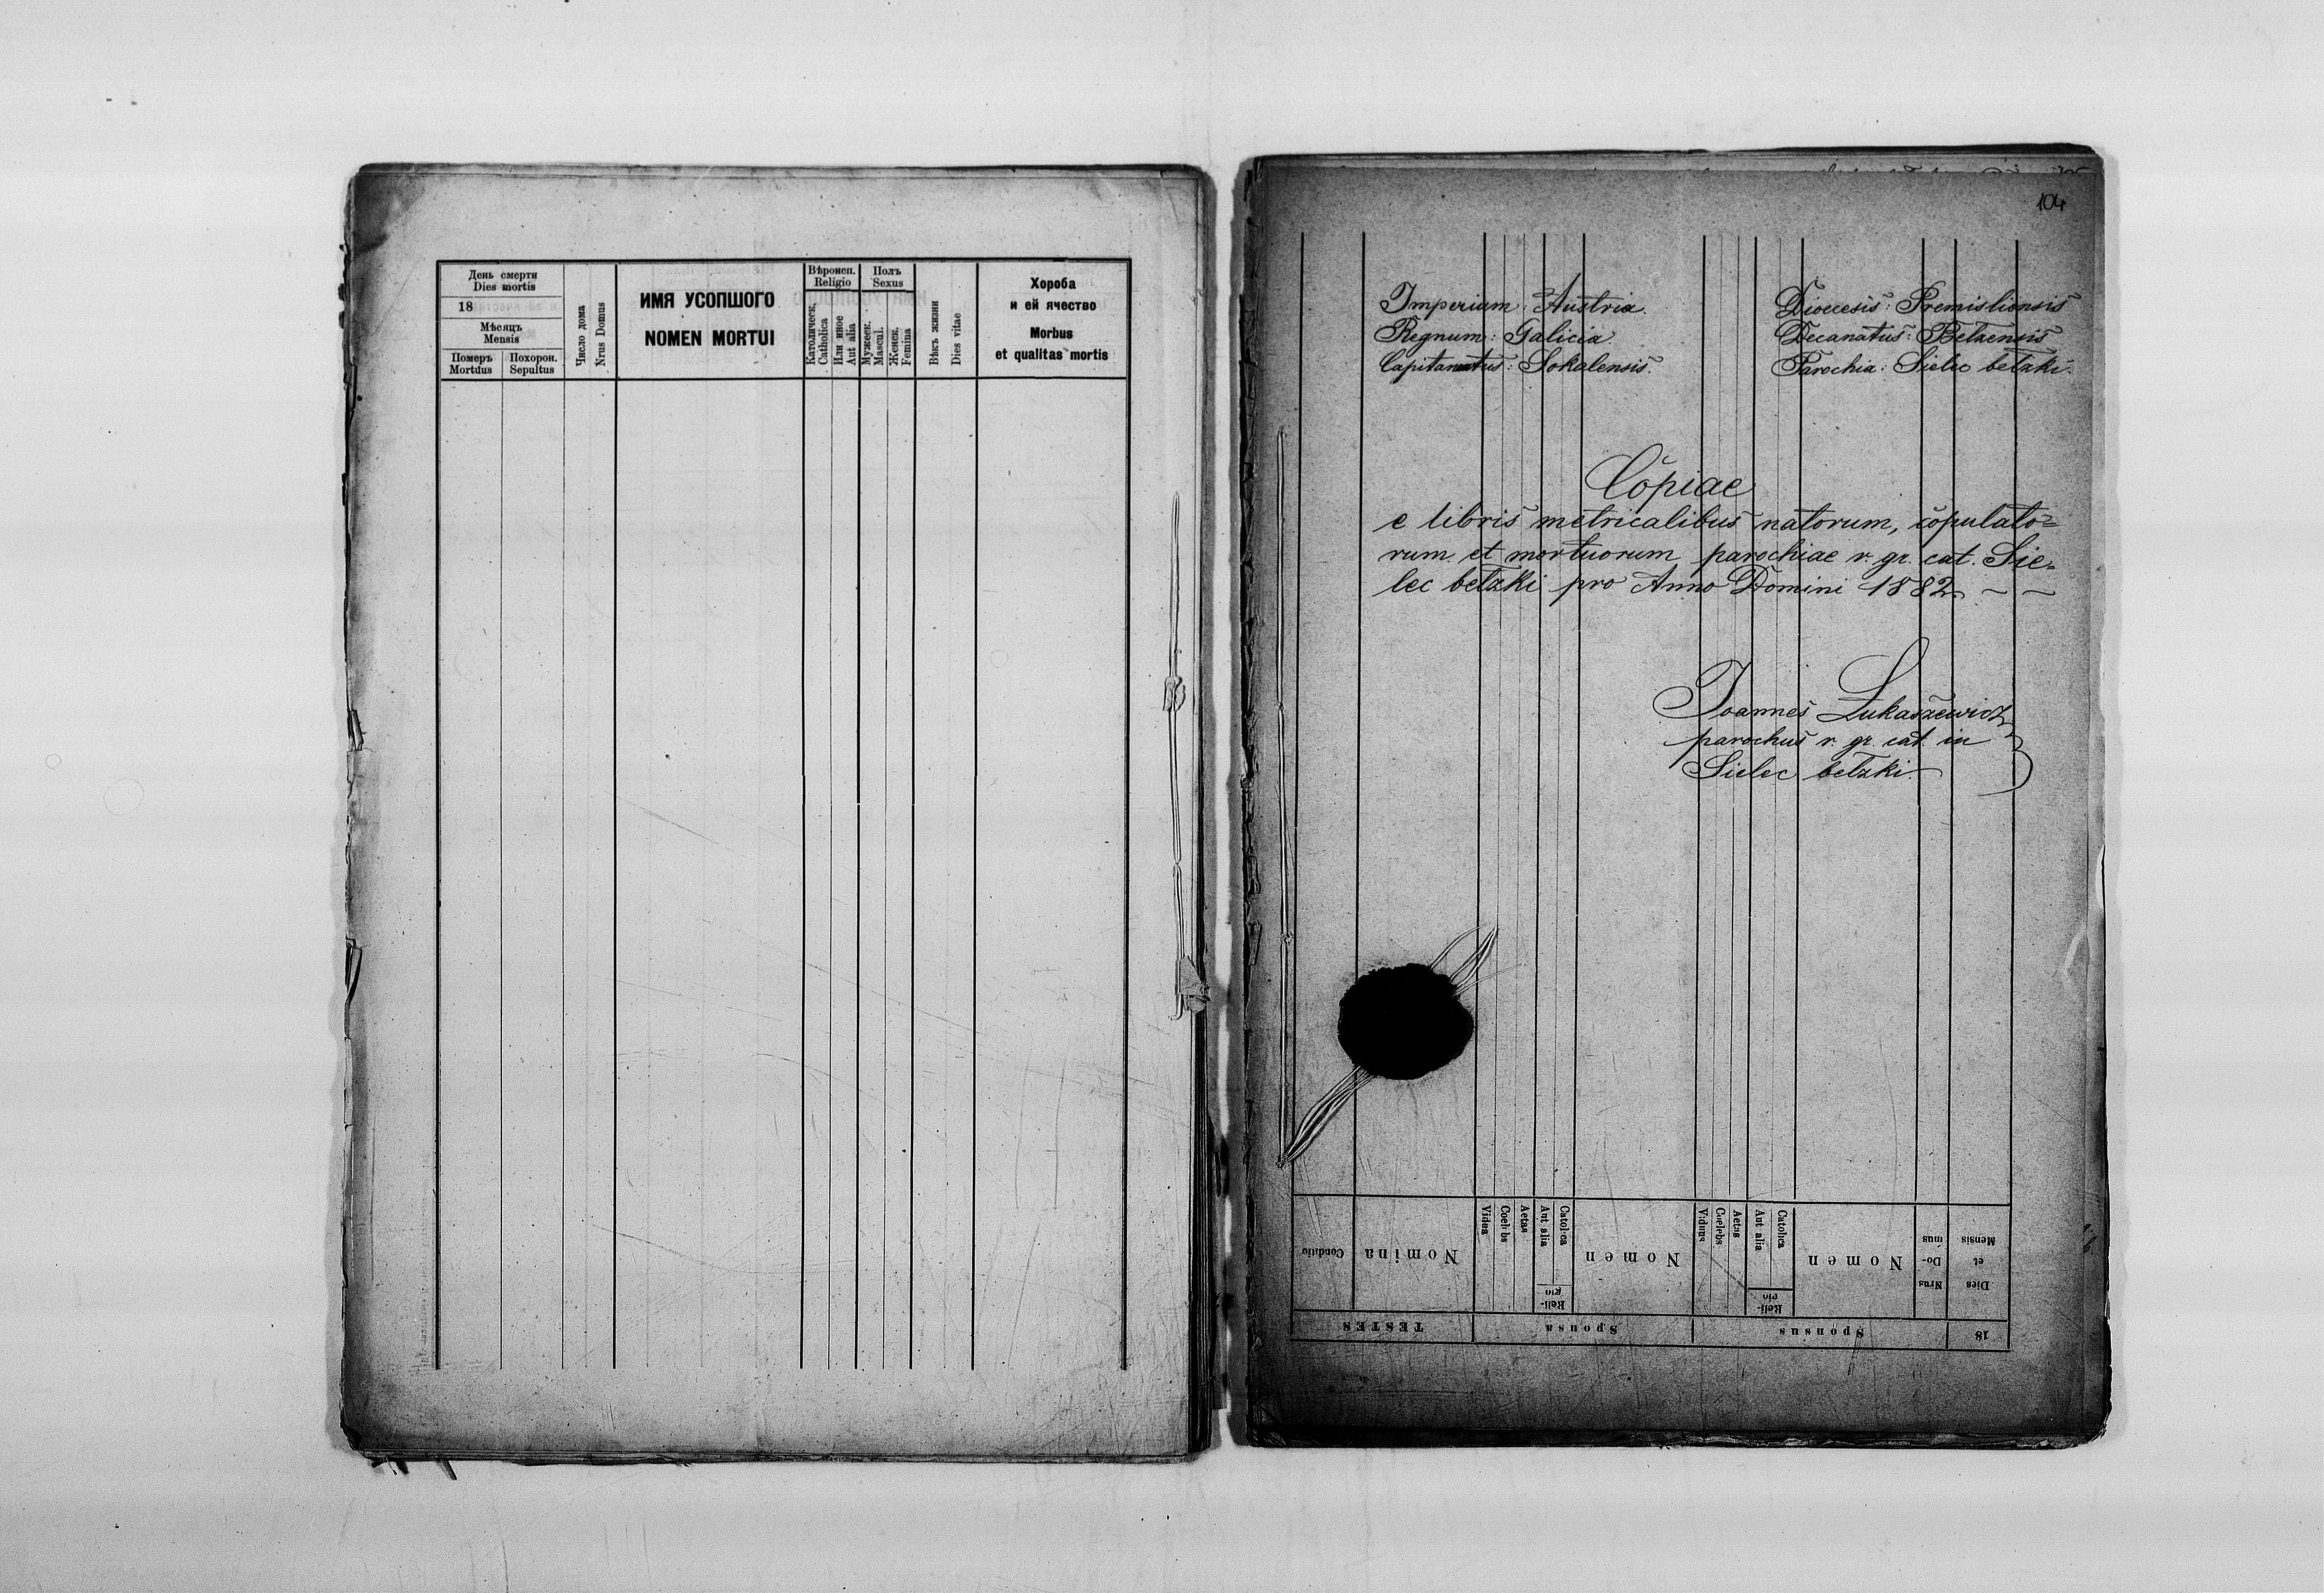 День смерти
Dies mortis
18
Мѣсяцъ
Mensis
Померъ
Mortuus
Похорон.
Sepultus
Число дома
Nrus Domus
ИМЯ УСОПШОГО
NOMEN MORTUI
Вѣроисп.
Religio
Католическ.
Catholica
Или иное
Aut alia
Полъ
Sexus
Мужеск.
Mascul.
Женск.
Femina
Вѣкъ жизни
Dies vitae
Хороба
и ей ячество
Morbus
et qualitas mortis
104
Imperium: Austria.
Regnum: Galicia
Capitanatus: Sokalensis.
Dioecesis: Premisliensis
Decanatus: Belzensis
Parochia: Sielec bełzki.
Copiae
e libris metricalibus natorum, copulato=
rum et mortuorum parochiae r. gr. cat. Sie=
lec bełzki pro Anno Domini 1882.
Joannes Łukaszewicz
parochus r. gr. cat. in
Sielec bełzki.
18
Dies
et
Mensis
Nrus
Do-
mus
Sponsus
Nomen
Reli-
gio
Catolica
Aut alia
Aetas
Coelebs
Viduus
Sponsa
Nomen
Reli-
gio
Catolica
Aut alia
Aetas
Coelebs
Vidua
TESTES
Nomina
Conditio